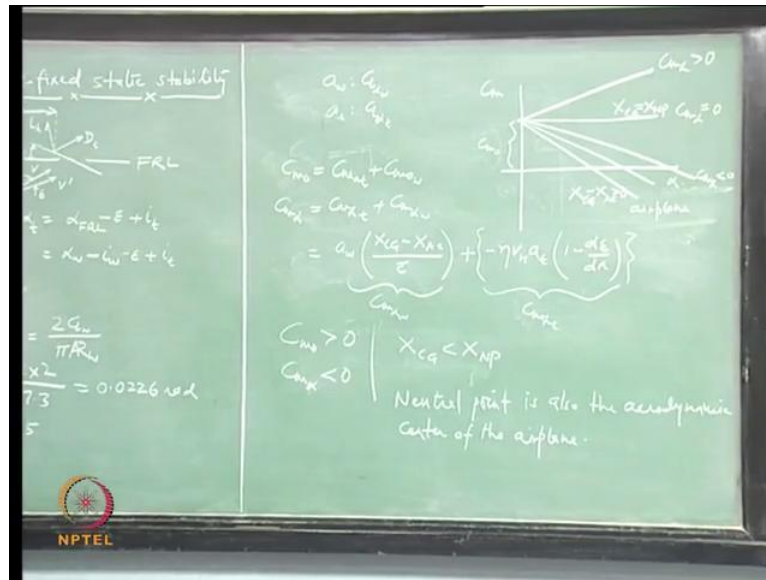 -fixed static stability
L_t
D_t
FRL
V
V'
α_t = α_FRL - ε + i_t
= α_w - i_w - ε + i_t
= 2C_Lw / πAR_w
x2 / 7.3 = 0.0226 rad
5
a_w : C_Lαw
a_t : C_Lαt
C_m0 = C_m0t + C_m0w
C_mα = C_mαt + C_mαw
= a_w ((X_CG - X_AC) / c̄) + {-ηV_H a_t (1 - dε/dα)}
C_mαw C_mαt
C_m0 > 0
C_mα < 0
X_CG < X_NP
Neutral point is also the aerodynamic
center of the airplane.
C_m
C_mα > 0
X_CG = X_NP C_mα = 0
C_m0
α
C_mα < 0
airplane
NPTEL